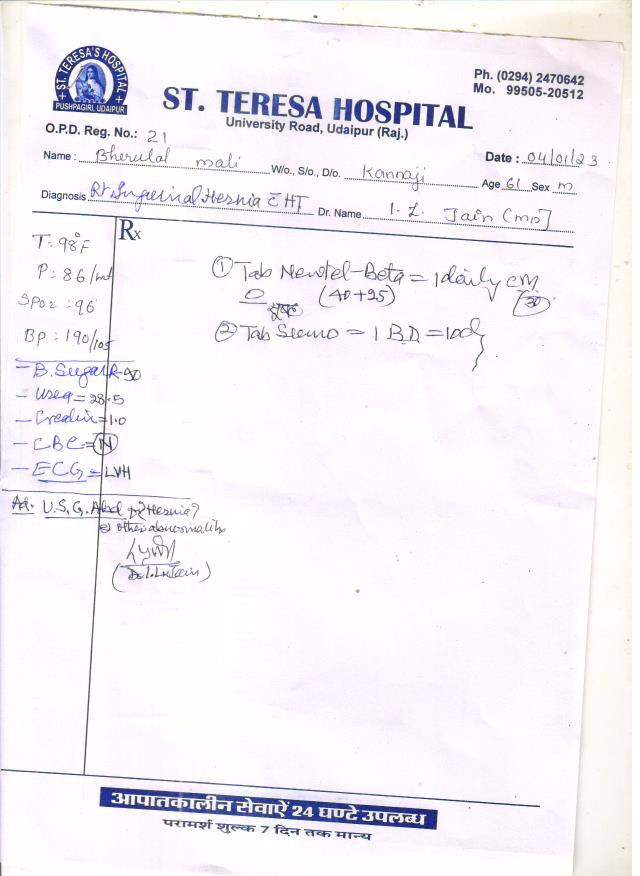 ST. TERESA'S HOSPITAL
PUSHPAGIRI, UDAIPUR
Ph. (0294) 2470642
Mo. 99505-20512
ST. TERESA HOSPITAL
University Road, Udaipur (Raj.)
O.P.D. Reg. No.: 21
Date : 04/01/23
Name : Bherulal mali W/o., S/o., D/o. Kannaji Age 61 Sex m
Diagnosis Rt. Inguinal Hernia c̄ HT Dr. Name I. L. Jain (MD)
Rx
T: 98°F
P: 86/mt
SPO2 : 96
BP: 190/105
① Tab Newtel-Beta = 1 daily
(40+25) 30
② Tab = 1 BD = 10d
- B. Sugar R- 90
- Urea = 28.5
- Creatin = 1.0
- CBC = N
- ECG = LVH
Ad. U.S.G. Abd ? Hernia?
other abnormalities
(Dr. I. L. Jain)
आपातकालीन सेवाऐं 24 घण्टे उपलब्ध
परामर्श शुल्क 7 दिन तक मान्य